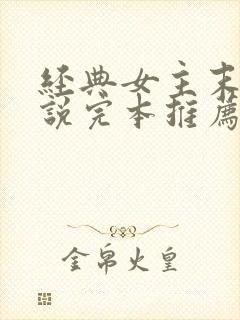 經典女主末
說完本推薦
金帛火皇